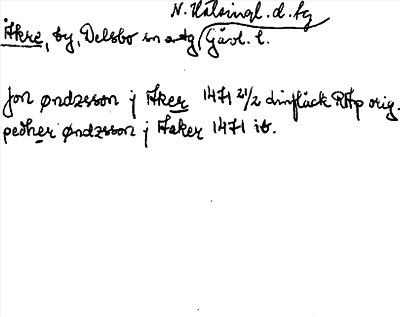 N. Hälsingl. d. tg
Åkre, by, Delsbo sn Gävl. l.
jon øndzsson j Aker 1471 21/2 RAp orig.
pedher øndzsson j Aaker 1471 ib.